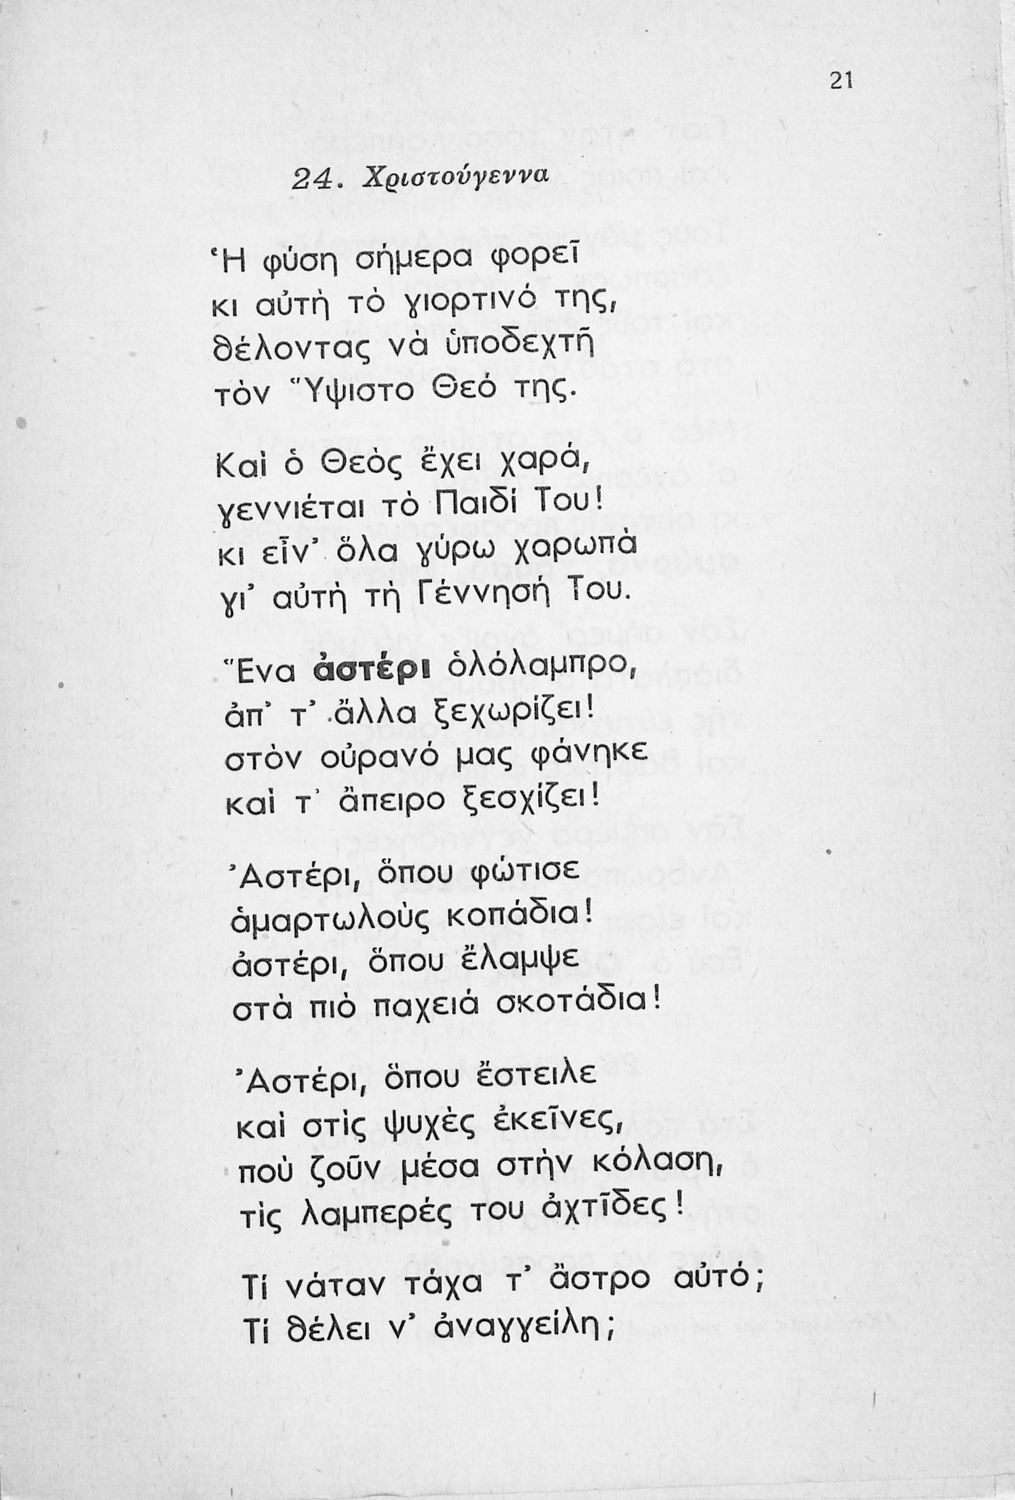 21
24. Χριστούγεννα
Ἡ φύση σήμερα φορεῖ
κι αὐτὴ τὸ γιορτινό της,
θέλοντας νὰ ὑποδεχτῆ
τὸν Ὕψιστο Θεό της.
Καὶ ὁ Θεὸς ἔχει χαρά,
γεννιέται τὸ Παιδί Του!
κι εἶν' ὅλα γύρω χαρωπὰ
γι' αὐτὴ τὴ Γέννησή Του.
Ἕνα ἀστέρι ὁλόλαμπρο,
ἀπ' τ' ἄλλα ξεχωρίζει!
στὸν οὐρανό μας φάνηκε
καὶ τ' ἄπειρο ξεσχίζει!
Ἀστέρι, ὅπου φώτισε
ἁμαρτωλοὺς κοπάδια!
ἀστέρι, ὅπου ἔλαμψε
στὰ πιὸ παχειά σκοτάδια!
Ἀστέρι, ὅπου ἔστειλε
καὶ στὶς ψυχὲς ἐκεῖνες,
ποὺ ζοῦν μέσα στὴν κόλαση,
τὶς λαμπερές του ἀχτῖδες!
Τί νάταν τάχα τ' ἄστρο αὐτό;
Τί θέλει ν' ἀναγγείλη;